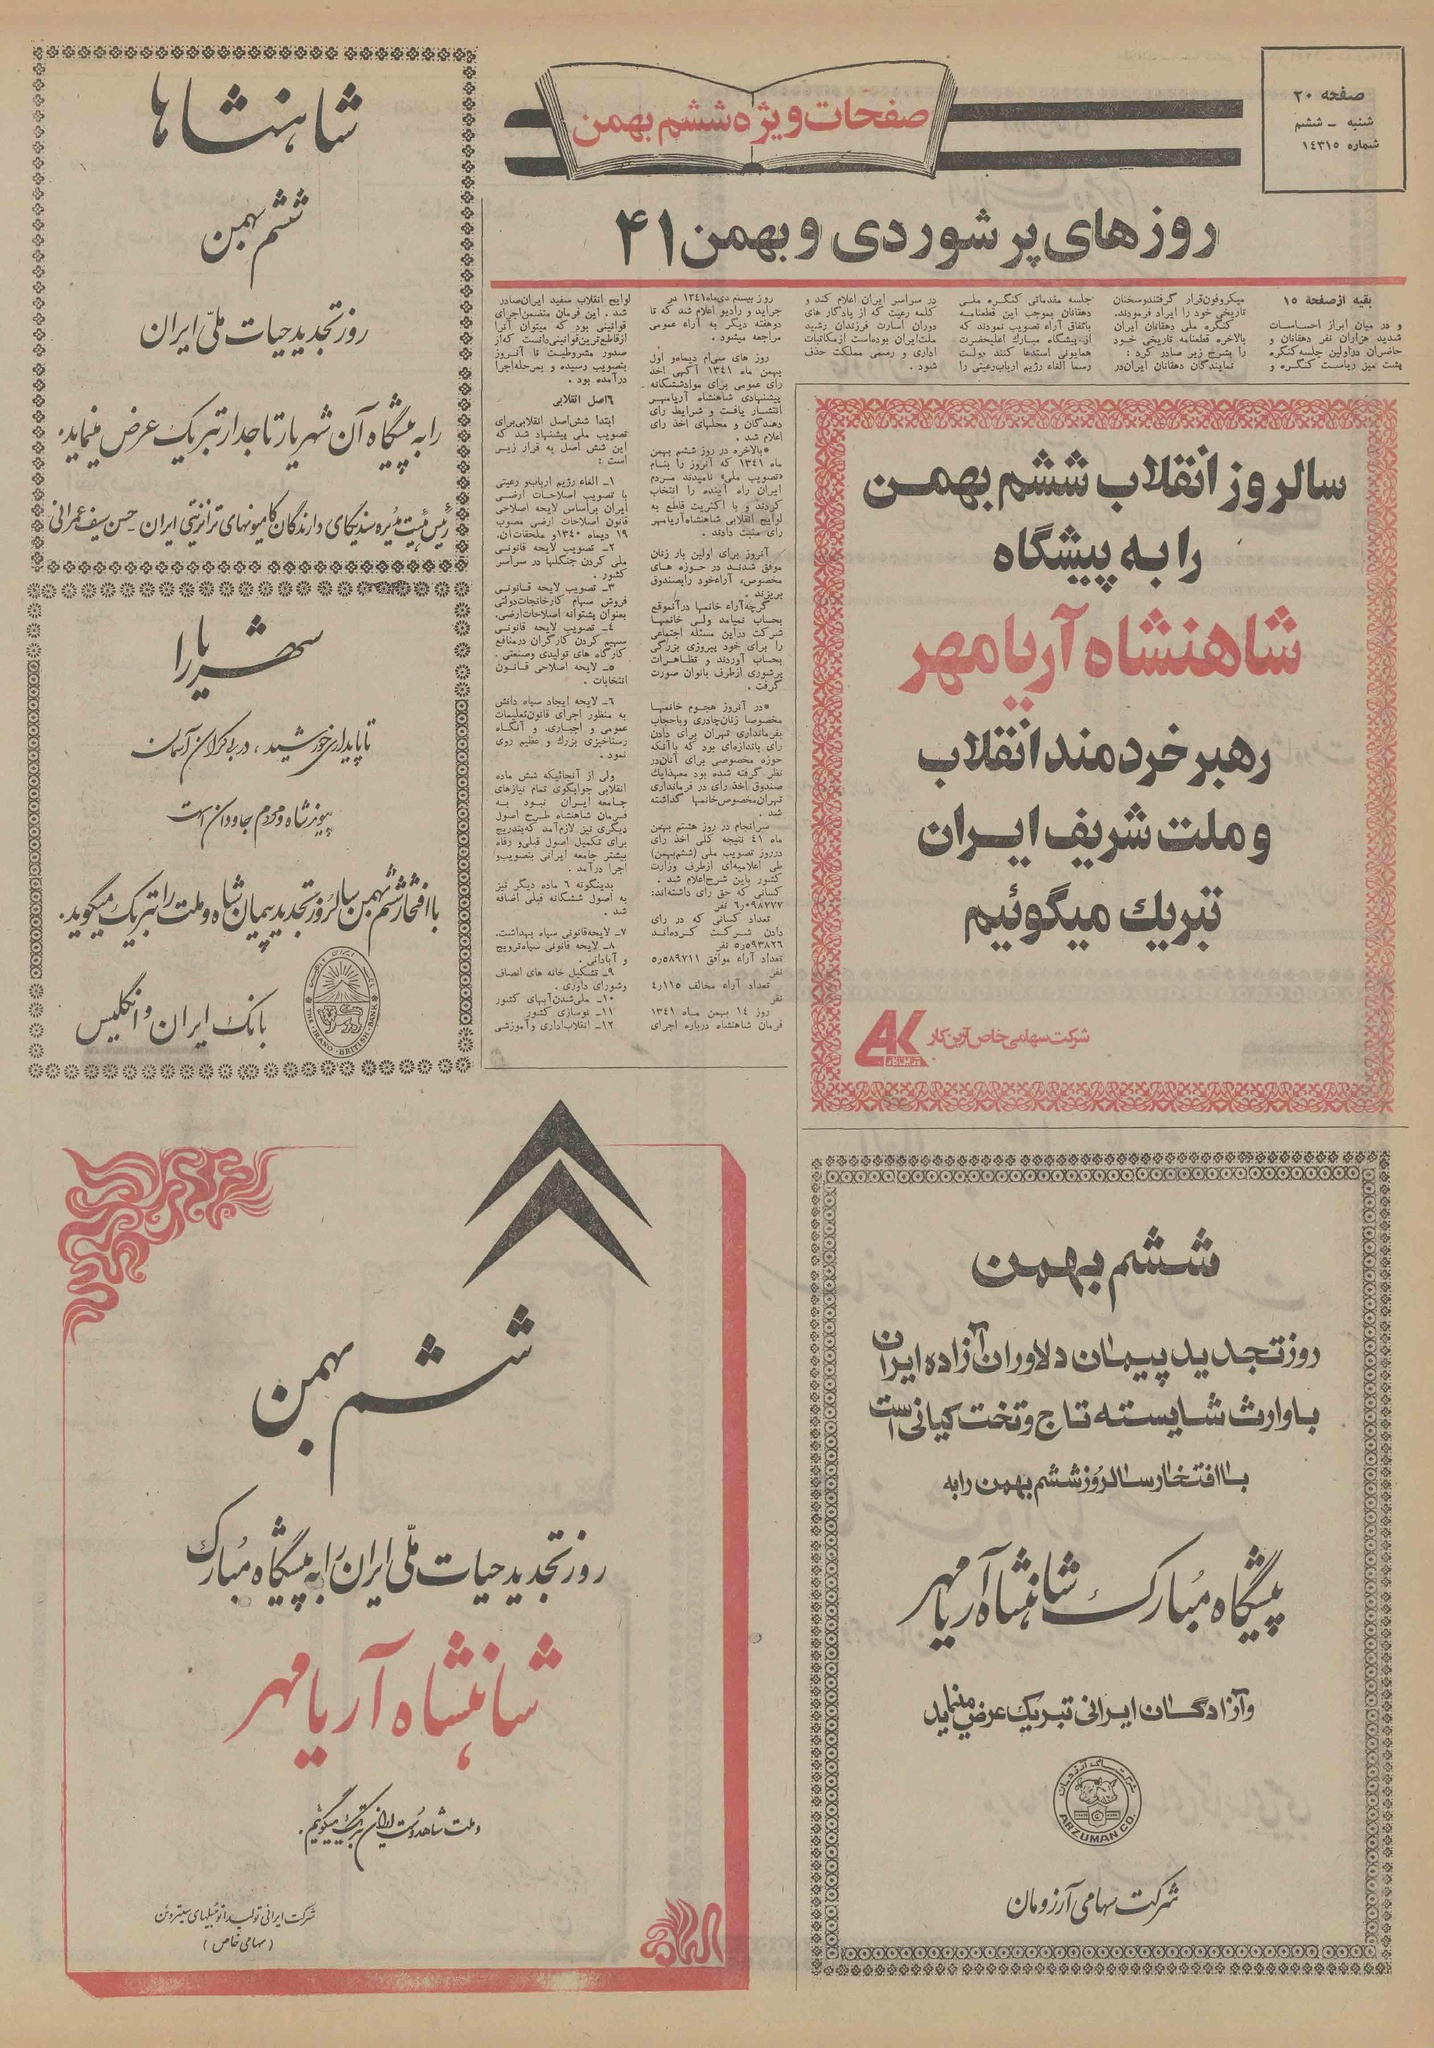 صفحه ۲۰
شنبه ـ ششم
شماره ۱۴۳۱۵
صفحات ویژه ششم بهمن
روزهای پرشور دی و بهمن ۴۱
بقیه از صفحه ۱۵
و در میان ابراز احساسات
شدید هزاران نفر دهقانان و
حاضران در اولین جلسه کنگره
پشت میز ریاست کنگره و
میکروفون قرار گرفتند و سخنان
تاریخی خود را ایراد فرمودند.
کنگره ملی دهقانان ایران
بالاخره قطعنامه تاریخی خود
را بشرح زیر صادر کرد :
نمایندگان دهقانان ایران در
جلسه مقدماتی کنگره ملی
دهقانان بموجب این قطعنامه
باتفاق آراء تصویب نمودند که
از پیشگاه مبارک اعلیحضرت
همایونی استدعا کنند دولت
رسما الغاء رژیم ارباب رعیتی را
در سراسر ایران اعلام کند و
کلمه رعیت که از یادگار های
دوران اسارت فرزندان رشید
ملت ایران بوده است از مکاتبات
اداری و رسمی مملکت حذف
شود .
روز بیستم دی ماه ۱۳۴۱ در
جراید و رادیو اعلام شد که تا
دو هفته دیگر به آراء عمومی
مراجعه میشود .
روز های سی ام دیماه و اول
بهمن ماه ۱۳۴۱ آگهی اخذ
رای عمومی برای مواد ششگانه
پیشنهادی شاهنشاه آریامهر
انتشار یافت و شرایط رای
دهندگان و محلهای اخذ رای
اعلام شد .
*بالاخره در روز ششم بهمن
ماه ۱۳۴۱ که آنروز را بنام
«تصویب ملی» نامیدند مردم
ایران راه آینده را انتخاب
کردند و با اکثریت قاطع به
لوایح انقلابی شاهنشاه آریامهر
رای مثبت دادند .
آنروز برای اولین بار زنان
موفق شدند در حوزه های
مخصوص، آراء خود را بصندوق
بریزند .
گرچه آراء خانمها در آنموقع
بحساب نیامد ولی خانمها
شرکت در این مسئله اجتماعی
را برای خود پیروزی بزرگی
بحساب آوردند و تظاهرات
پرشوری از طرف بانوان صورت
گرفت .
*در آنروز هجوم خانمها
مخصوصا زنان چادری و باحجاب
بفرمانداری تهران برای دادن
رای باندازه‌ای بود که با آنکه
حوزه مخصوصی برای آنان در
نظر گرفته شده بود معهذا یک
صندوق اخذ رای در فرمانداری
تهران مخصوص خانمها گذاشته
شد .
سرانجام در روز هشتم بهمن
ماه ۴۱ نتیجه کلی اخذ رای
در روز تصویب ملی (ششم بهمن)
طی اعلامیه‌ای از طرف وزارت
کشور باین شرح اعلام شد .
کسانی که حق رای داشته‌اند:
۶٫۰۹۸۷۷۷ نفر
تعداد کسانی که در رای
دادن شرکت کرده‌اند
۵٫۵۹۳۸۲۶ نفر
تعداد آراء موافق ۵٫۵۸۹۷۱۱
نفر
تعداد آراء مخالف ۴٫۱۱۵
نفر
روز ۱۴ بهمن ماه ۱۳۴۱
فرمان شاهنشاه درباره اجرای
لوایح انقلاب سفید ایران صادر
شد . این فرمان متضمن اجرای
قوانینی بود که میتوان آنرا
از قاطع‌ترین قوانینی دانست که از
صدور مشروطیت تا آنروز
بتصویب رسیده و بمرحله اجرا
درآمده بود .
۶ اصل انقلابی
ابتدا شش اصل انقلابی برای
تصویب ملی پیشنهاد شد که
این شش اصل به قرار زیر
است :
۱ـ الغاء رژیم ارباب و رعیتی
با تصویب اصلاحات ارضی
ایران براساس لایحه اصلاحی
قانون اصلاحات ارضی مصوب
۱۹ دیماه ۱۳۴۰ و ملحقات آن.
۲ـ تصویب لایحه قانونی
ملی کردن جنگلها در سراسر
کشور .
۳ـ تصویب لایحه قانونی
فروش سهام کارخانجات دولتی
بعنوان پشتوانه اصلاحات ارضی.
۴ـ تصویب لایحه قانونی
سهیم کردن کارگران در منافع
کارگاه های تولیدی و صنعتی .
۵ـ لایحه اصلاحی قانون
انتخابات .
۶ـ لایحه ایجاد سپاه دانش
به منظور اجرای قانون تعلیمات
عمومی و اجباری. و آنگاه
رستاخیزی بزرگ و عظیم روی
نمود .
ولی از آنجائیکه شش ماده
انقلابی جوابگوی تمام نیازهای
جامعه ایران نبود به
فرمان شاهنشاه طرح اصول
دیگری نیز لازم آمد که بتدریج
برای تکمیل اصول قبلی و رفاه
بیشتر جامعه ایرانی بتصویب و
اجرا درآمد .
بدینگونه ۶ ماده دیگر نیز
به اصول ششگانه قبلی اضافه
شد .
۷ـ لایحه قانونی سپاه بهداشت.
۸ـ لایحه قانونی سپاه ترویج
و آبادانی .
۹ـ تشکیل خانه های انصاف
و شورای داوری .
۱۰ـ ملی شدن آبهای کشور
۱۱ـ نوسازی کشور
۱۲ـ انقلاب اداری و آموزشی
شاهنشاها
ششم بهمن
روز تجدید حیات ملّی ایران
را به پیشگاه آن شهریار تاجدار تبریک عرض مینماید.
رئیس هیئت مدیره سندیکای دارندگان کامیونهای ترانزیتی ایران - حسن سیف عمرانی
شهریارا
تا پایداری خورشید، در بیکران آسمان
پیوند شاه و مردم جاودان است
با افتخار ششم بهمن سالروز تجدید پیمان شاه و ملت را تبریک میگوید.
بانک ایران و انگلیس
THE IRANO-BRITISH BANK
سالروز انقلاب ششم بهمن
را به پیشگاه
شاهنشاه آریامهر
رهبر خردمند انقلاب
و ملت شریف ایران
تبریک میگوئیم
شرکت سهامی خاص آرین کار
AK
آرین کار
ششم بهمن
روز تجدید حیات ملّی ایران را به پیشگاه مبارک
شاهنشاه آریامهر
و ملت شاهدوست ایران تبریک میگوئیم.
شرکت ایرانی تولید اتومبیلهای سیتروئن
(سهامی خاص)
ششم بهمن
روز تجدید پیمان دلاوران آزاده ایران
با وارث شایسته تاج و تخت کیانی است
با افتخار سالروز ششم بهمن را به
پیشگاه مبارک شاهنشاه آریامهر
و آزادگان ایرانی تبریک عرض مینماید
ARZUMAN CO.
شرکت سهامی آرزومان